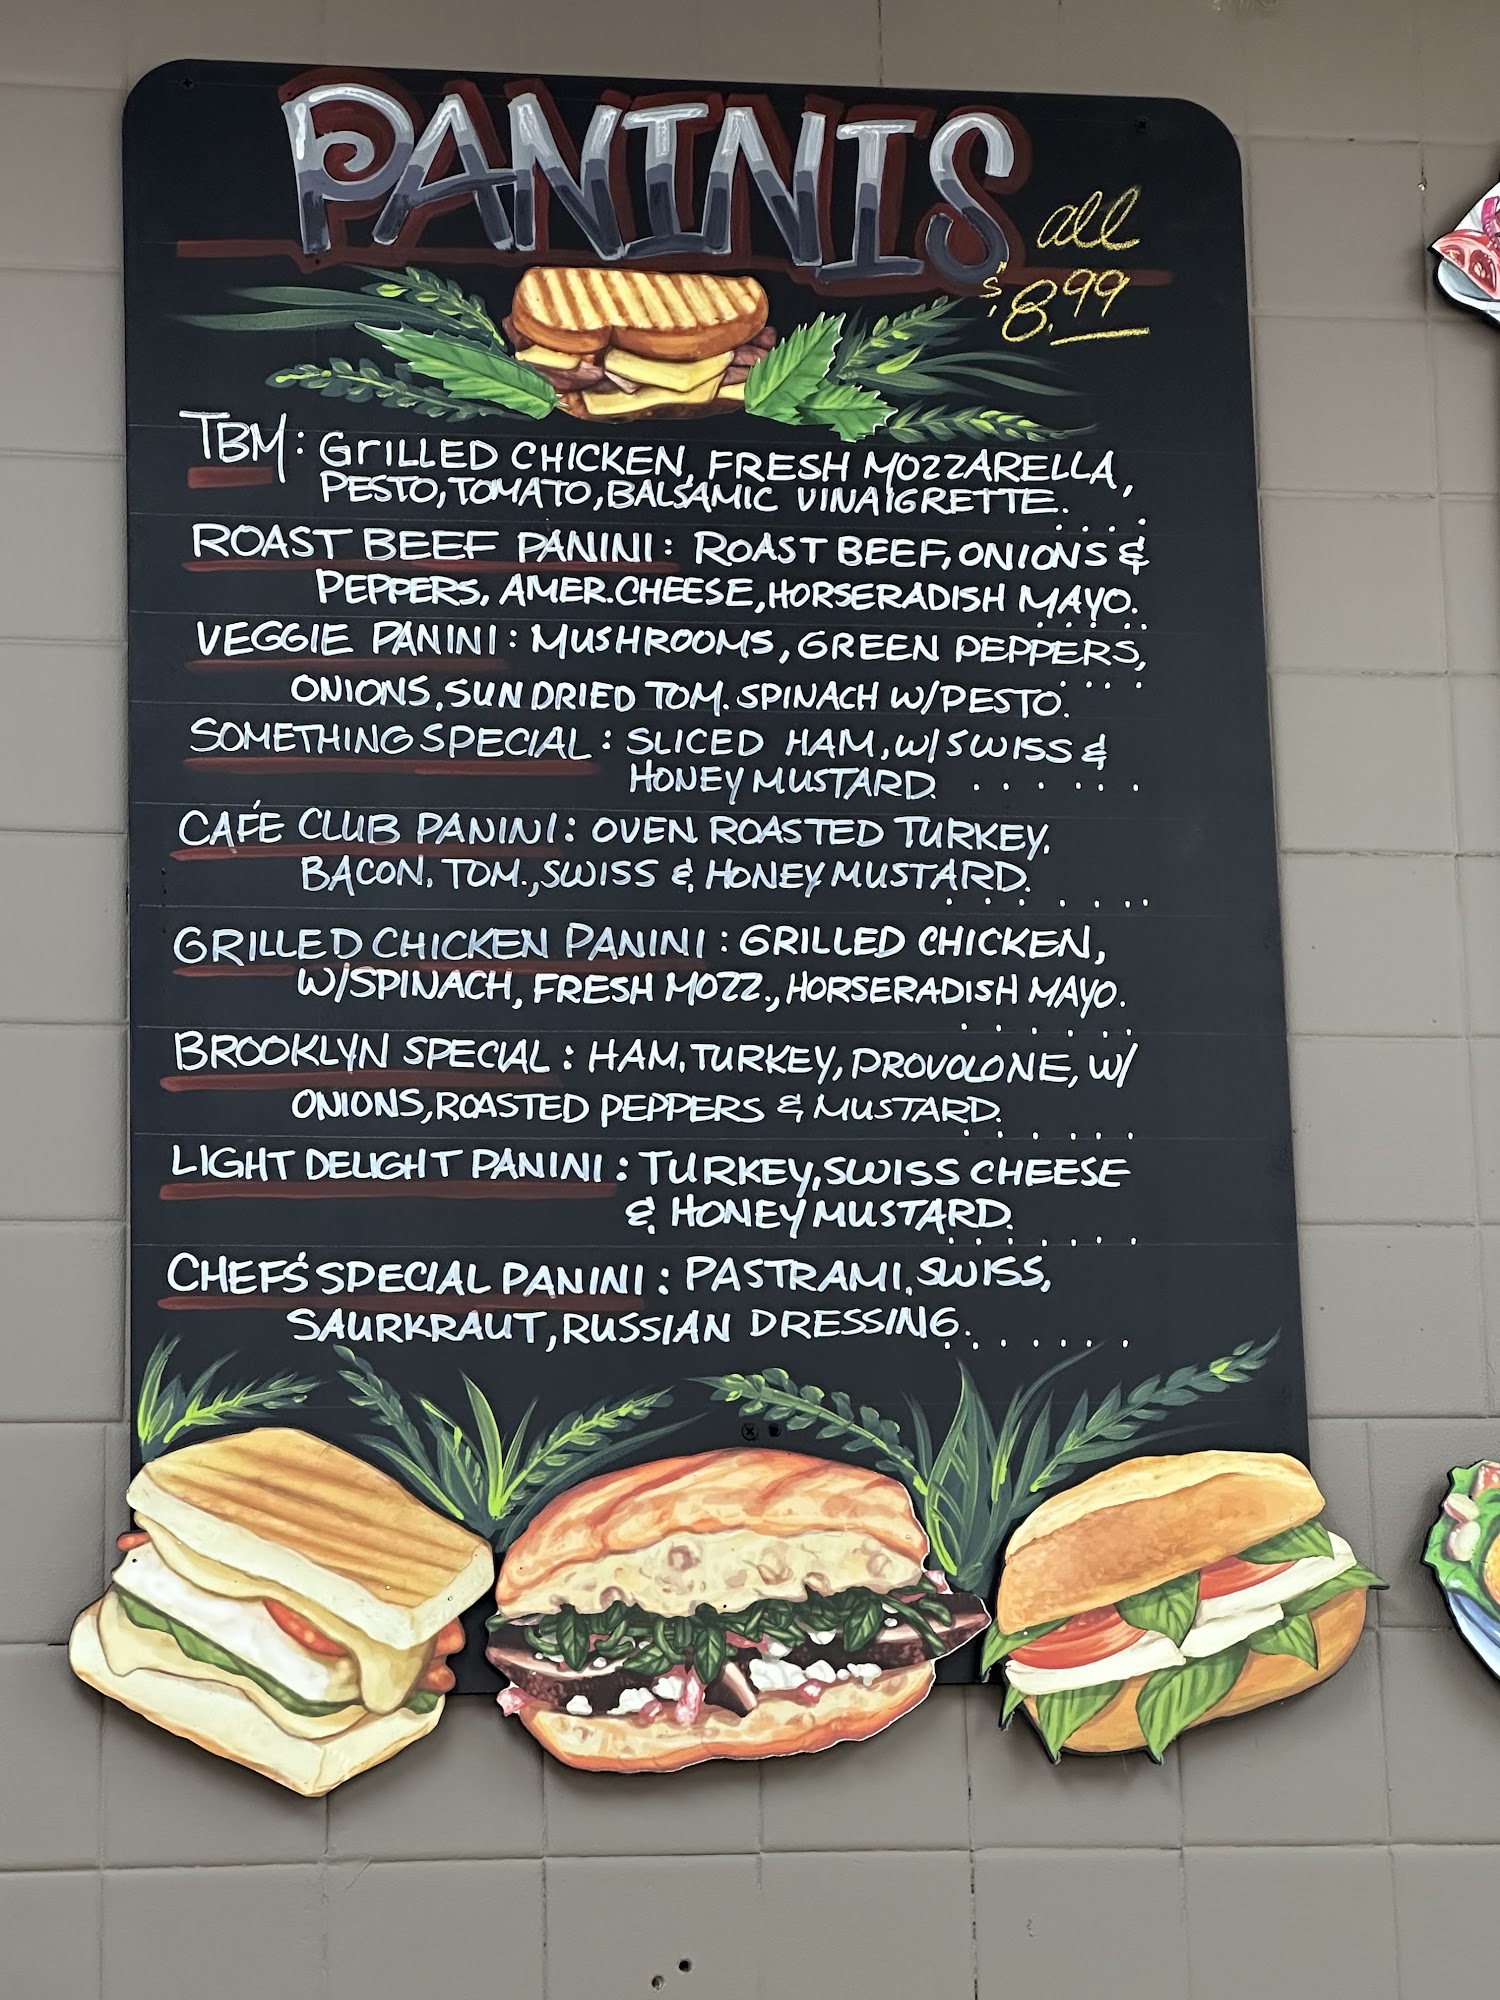 PANINIS
all
$8.99
TBM: GRILLED CHICKEN, FRESH MOZZARELLA,
PESTO, TOMATO, BALSAMIC VINAIGRETTE.....
ROAST BEEF PANINI: ROAST BEEF, ONIONS &
PEPPERS, AMER. CHEESE, HORSERADISH MAYO.....
VEGGIE PANINI: MUSHROOMS, GREEN PEPPERS,
ONIONS, SUN DRIED TOM. SPINACH W/PESTO.....
SOMETHING SPECIAL: SLICED HAM, W/ SWISS &
HONEY MUSTARD.......
CAFÉ CLUB PANINI: OVEN ROASTED TURKEY,
BACON, TOM., SWISS & HONEY MUSTARD.......
GRILLED CHICKEN PANINI: GRILLED CHICKEN,
W/SPINACH, FRESH MOZZ., HORSERADISH MAYO.......
BROOKLYN SPECIAL: HAM, TURKEY, PROVOLONE, W/
ONIONS, ROASTED PEPPERS & MUSTARD.......
LIGHT DELIGHT PANINI: TURKEY, SWISS CHEESE
& HONEY MUSTARD.......
CHEF'S SPECIAL PANINI: PASTRAMI, SWISS,
SAURKRAUT, RUSSIAN DRESSING.......